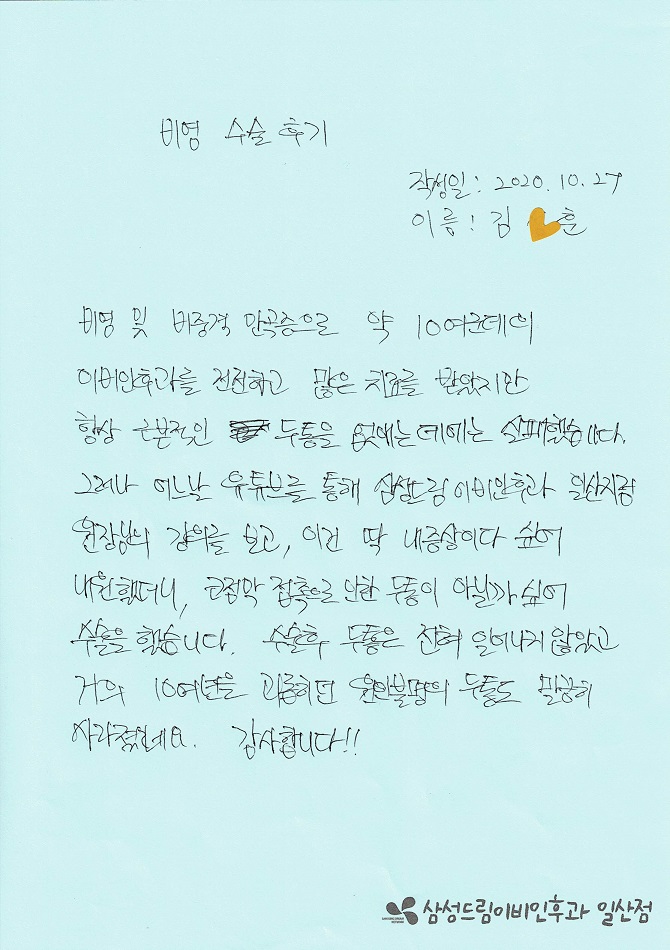 비염 수술 후기
작성일 : 2020.10.27
이름 : 김 훈
비염 및 비중격 만곡증으로 약 10여군데의
이비인후과를 전전하고 많은 치료를 받았지만
항상 근본적인 두통을 없애는 데에는 실패했습니다.
그러나 어느날 유튜브를 통해 삼성드림이비인후과 일산지점
원장님의 강의를 보고, 이건 딱 내증상이다 싶어
내원했더니, 코점막 접촉으로 인한 두통이 아닐까 싶어
수술을 했습니다. 수술후 두통은 전혀 일어나지 않았고
거의 10여년을 괴롭히던 원인불명의 두통도 말끔히
사라졌네요. 감사합니다!!
삼성드림이비인후과 일산점